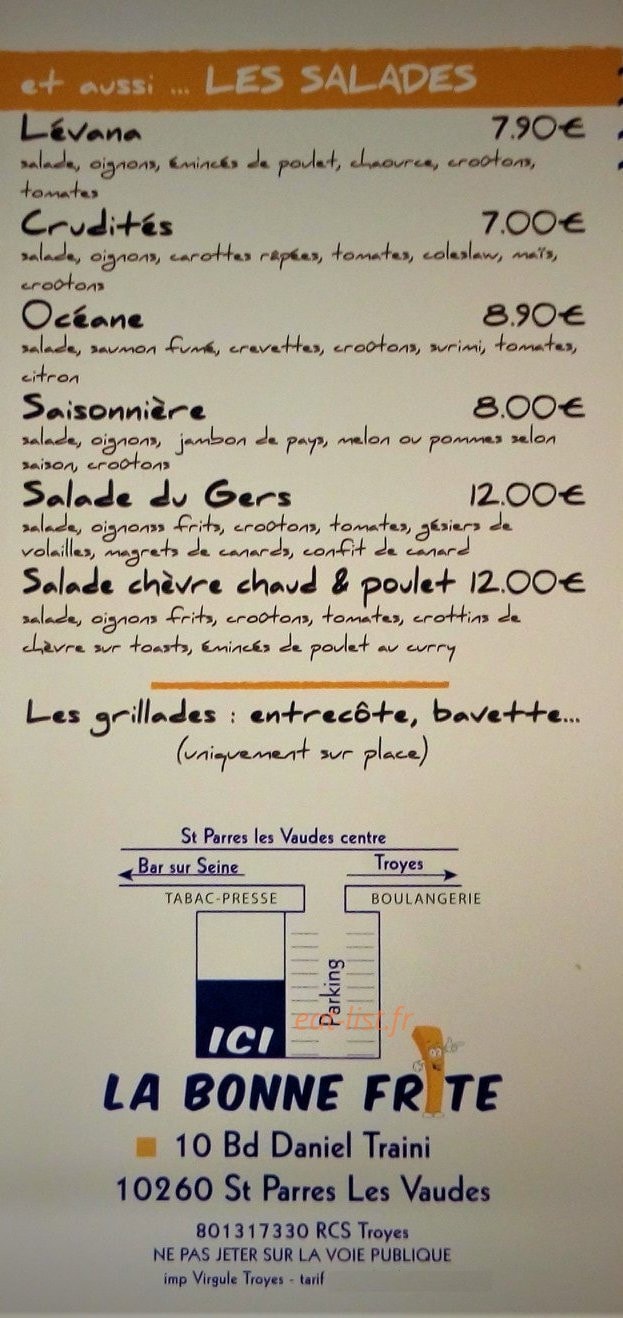 et aussi ... LES SALADES
Lévana 7.90€
salade, oignons, émincés de poulet, chaource, croûtons,
tomates
Crudités 7.00€
salade, oignons, carottes râpées, tomates, coleslaw, maïs,
croûtons
Océane 8.90€
salade, saumon fumé, crevettes, croûtons, surimi, tomates,
citron
Saisonnière 8.00€
salade, oignons, jambon de pays, melon ou pommes selon
saison, croûtons
Salade du Gers 12.00€
salade, oignonss frits, croûtons, tomates, gésiers de
volailles, magrets de canards, confit de canard
Salade chèvre chaud & poulet 12.00€
salade, oignons frits, croûtons, tomates, crottins de
chèvre sur toasts, émincés de poulet au curry
Les grillades : entrecôte, bavette...
(uniquement sur place)
St Parres les Vaudes centre
Bar sur Seine Troyes
TABAC-PRESSE BOULANGERIE
Parking
eat-list.fr
ICI
LA BONNE FRITE
10 Bd Daniel Traini
10260 St Parres Les Vaudes
801317330 RCS Troyes
NE PAS JETER SUR LA VOIE PUBLIQUE
imp Virgule Troyes - tarif